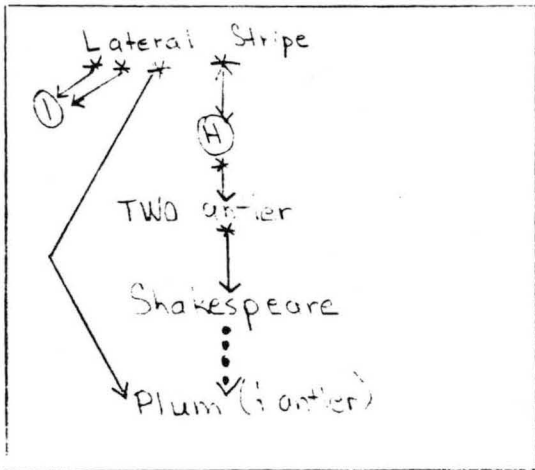 Lateral Stripe
I
H
TWO antler
Shakespeare
Plum (1 antler)